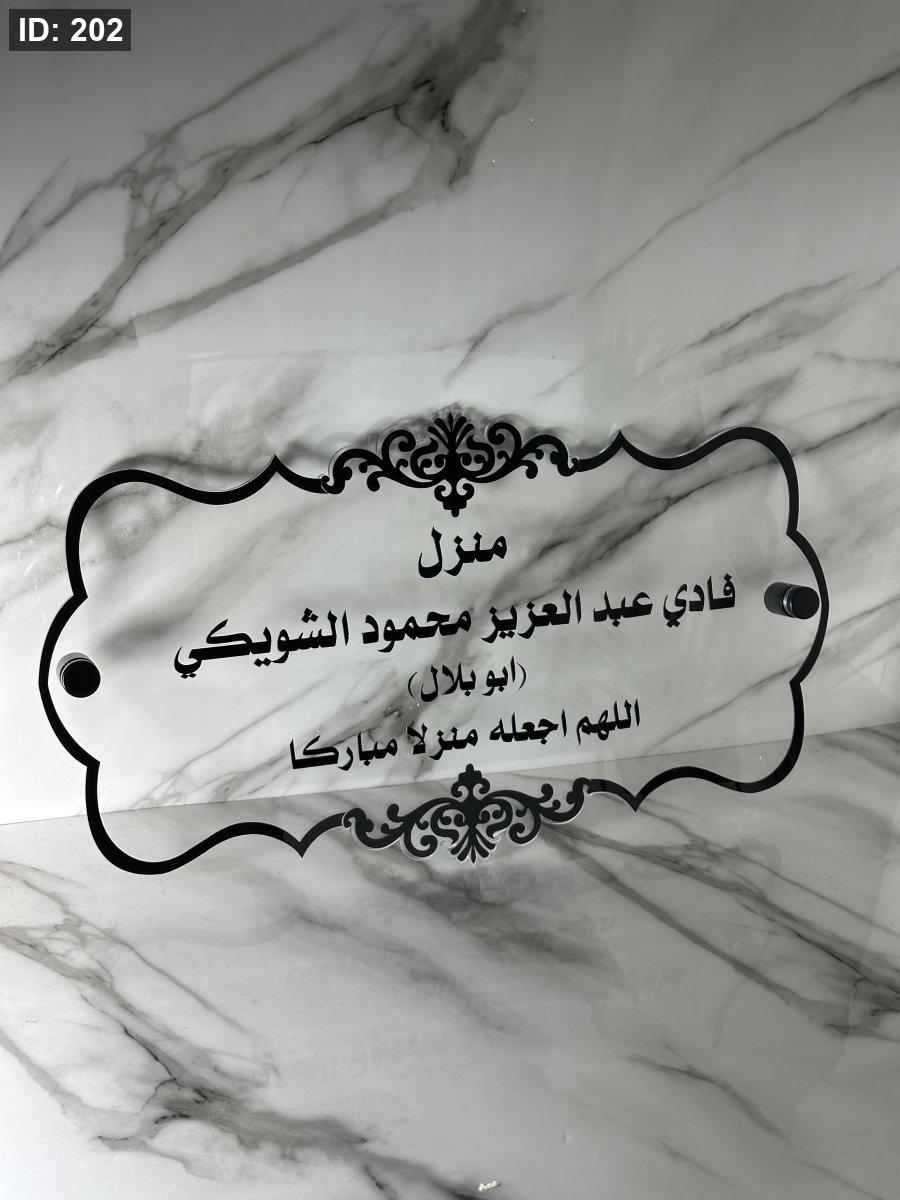 ID: 202
منزل
فادي عبد العزيز محمود الشويكي
(ابو بلال)
اللهم اجعله منزلا مباركا